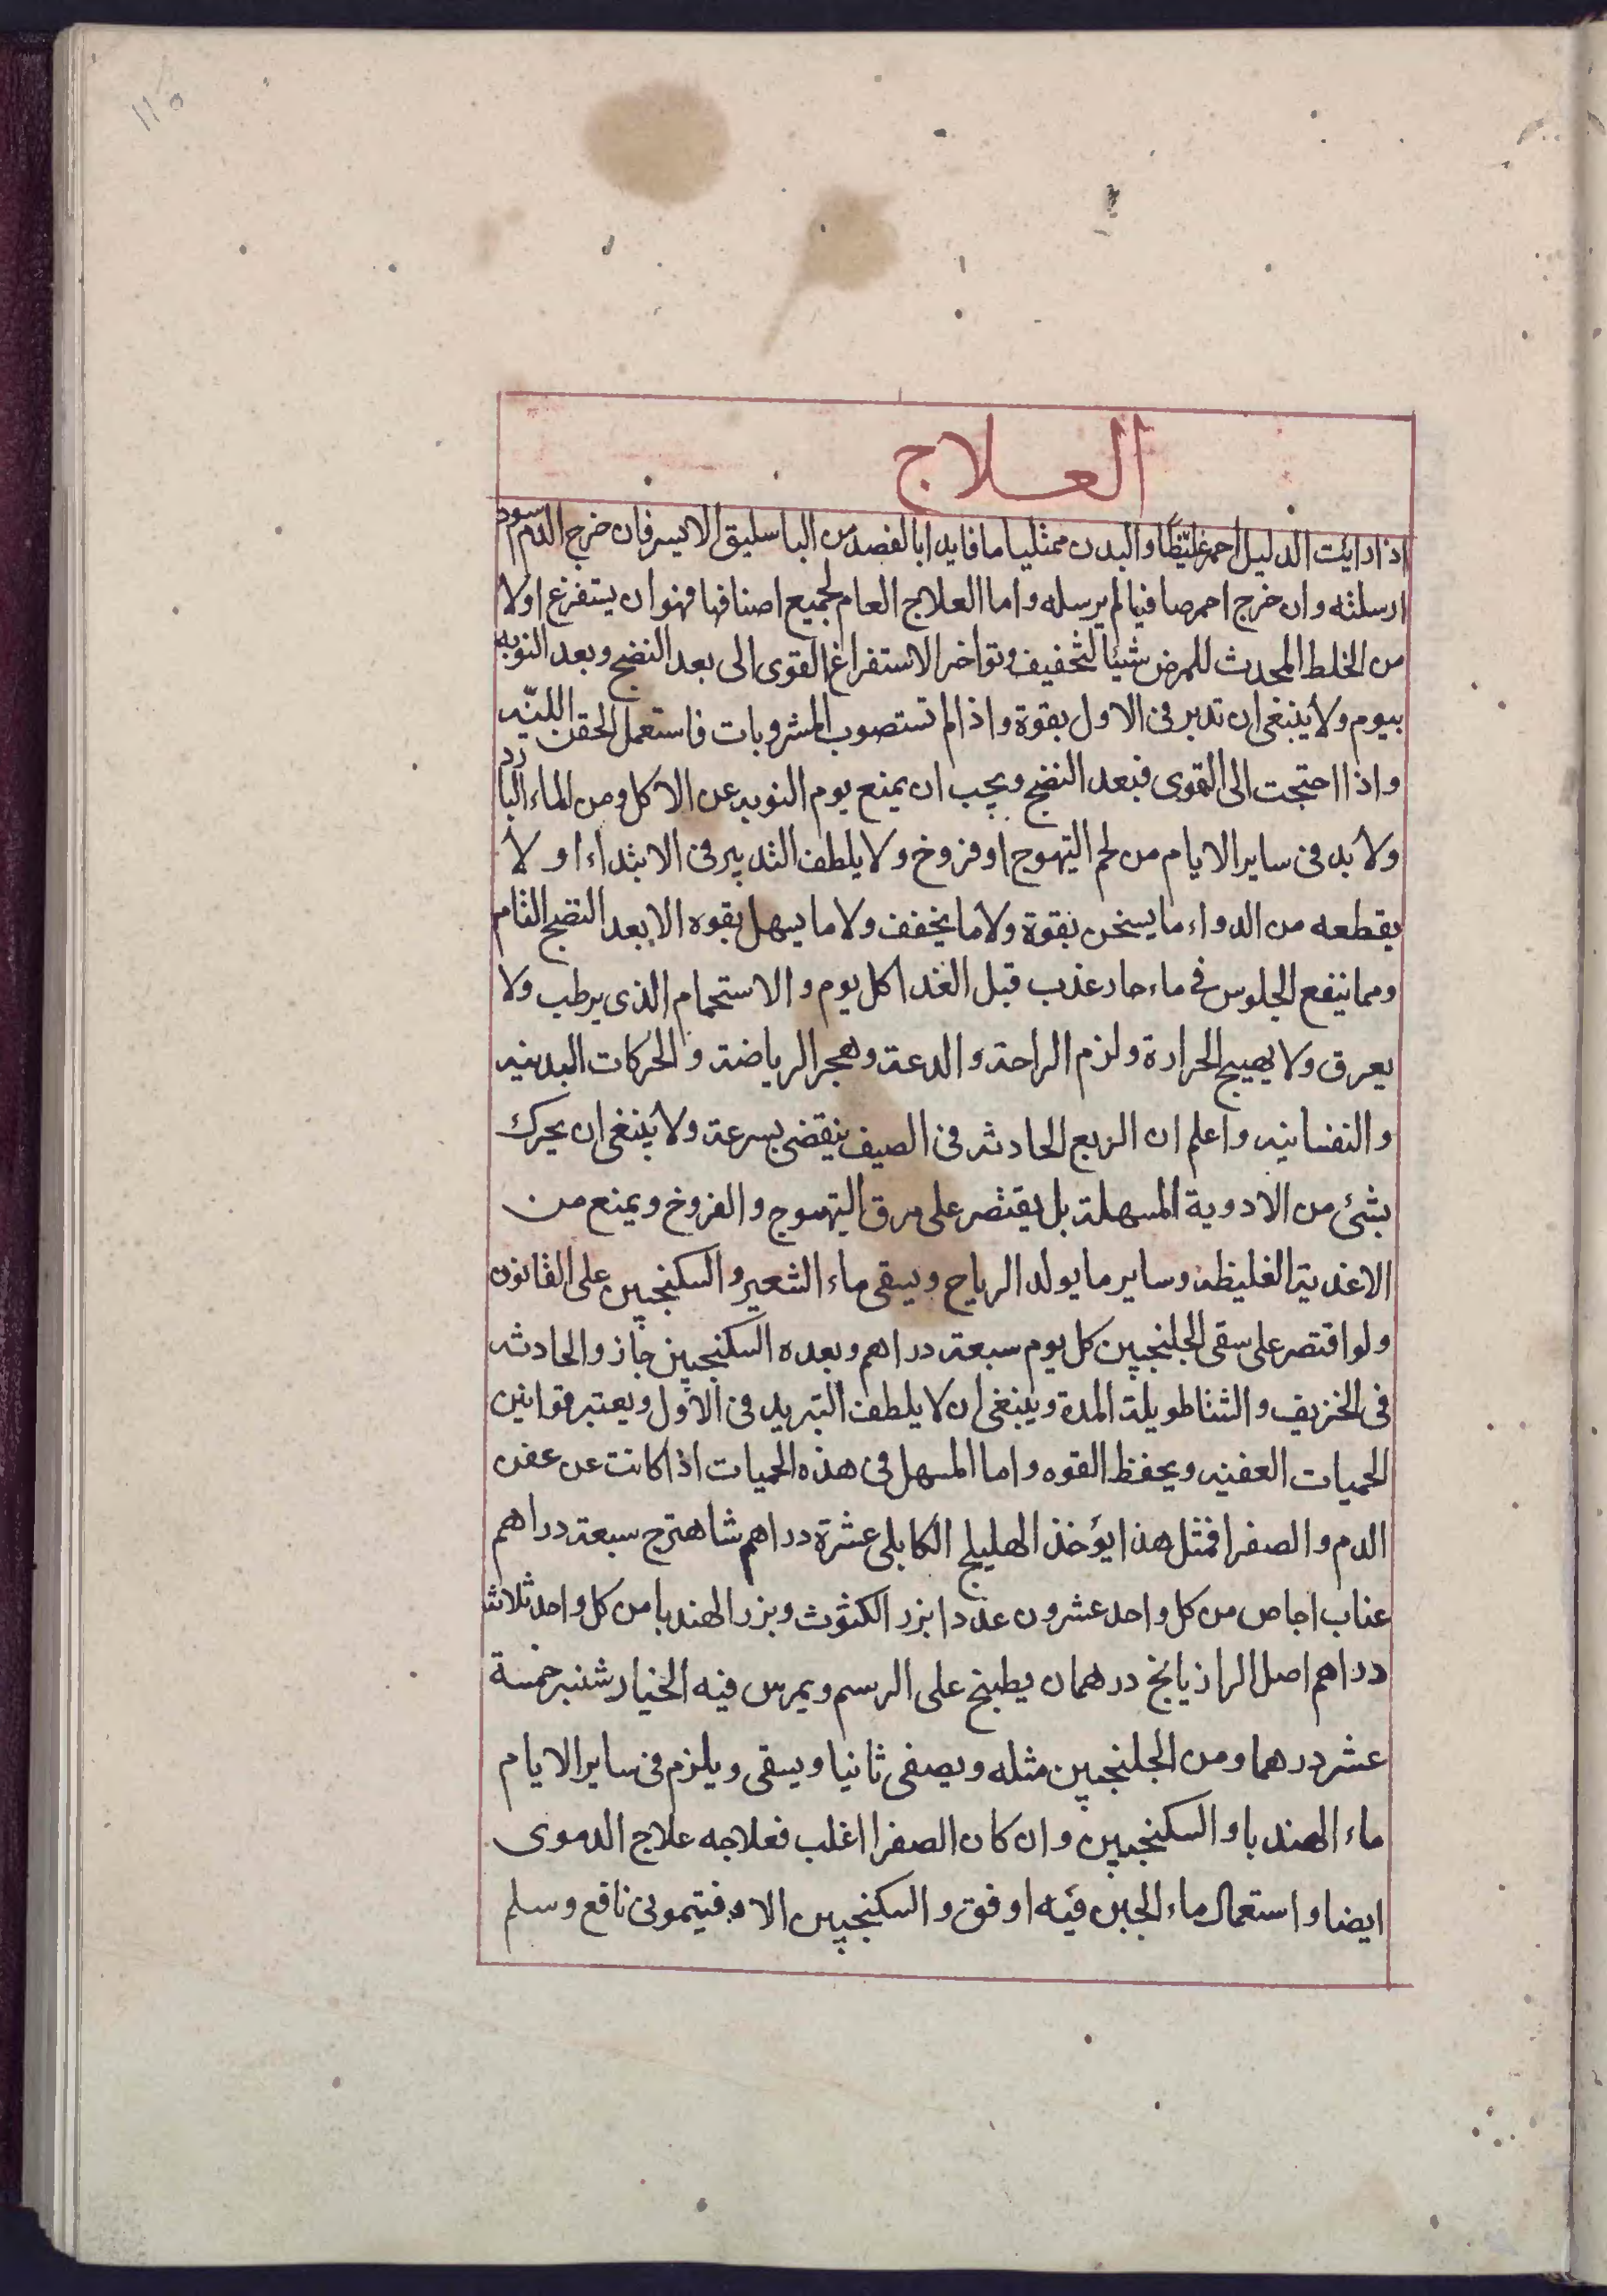 العلاج
اذا رايت الدليل احمر غليظا والبدن ممتليا ما فابدا بالفصد من الباسليق الايسر فان خرج الدم اسود
ارسلته وان خرج احمر صافيا لم يرسله واما العلاج العام لجميع اصنافها فهو ان يستفرغ اولا
من الخلط المحدث للمرض شيئا لتخفيف وتواخر الاستفراغ القوى الى بعد النضج وبعد النوبه
بيوم ولا ينبغى ان تدبر فى الاول بقوة واذا لم تستصوب المشروبات فاستعمل الحقن اللينه
واذا احتجت الى القوى فبعد النضج ويجب ان يمنع يوم النوبه عن الاكل ومن الماء البارد
ولا بد فى ساير الايام من لحم التيهوج او فروخ ولا يلطف التدبير فى الابتداء او لا
يقطعه من الدواء ما يسخن بقوة ولا ما يخفف ولا ما يسهل بقوه الا بعد النضج التام
ومما ينفع الجلوس فى ماء حار عذب قبل الغدا كل يوم والاستحمام الذى يرطب ولا
يعرق ولا يهيج الحرارة ولزم الراحة والدعة وهجر الرياضة والحركات البدنيه
والنفسانيه واعلم ان الربع الحادثه فى الصيف ينقضى بسرعة ولا ينبغى ان يحرك
بشئ من الادوية المسهلة بل يقتصر على مرق التيهوج والفروخ ويمنع من
الاغذية الغليظه وساير ما يولد الرياح ويسقى ماء الشعير والسكنجبين على القانون
ولو اقتصر على سقى الجلنجبين كل يوم سبعة دراهم وبعده السكنجبين جاز والحادثه
فى الخريف والشتا طويلة المدة وينبغى ان لا يلطف التبريد فى الاول ويعتبر قوانين
الحميات العفنيه ويحفظ القوه واما المسهل فى هذه الحميات اذا كانت عن عفن
الدم والصفرا فمثل هذا يؤخذ الهليلج الكابلى عشرة دراهم شاهترج سبعة دراهم
عناب اجاص من كل واحد عشرون عددا بزر الكثوث وبزر الهندبا من كل واحد ثلاث
دراهم اصل الرازيانج درهمان يطبخ على الرسم ويمرس فيه الخيار شنبر خمسة
عشر درهما ومن الجلنجبين مثله ويصفى ثانيا ويسقى ويلزم فى ساير الايام
ماء الهندبا والسكنجبين وان كان الصفرا اغلب فعلاجه علاج الدموى
ايضا واستعمال ماء الجبن فيه اوفق والسكنجبين الافتيمونى نافع وسلم